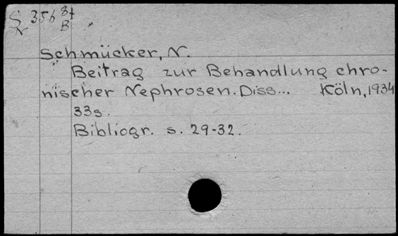 S 356 B4
B
Schmücker, N.
Beitrag zur Behandlung chro-
nischer Nephrosen. Diss... Köln, 1934
33s.
Bibliogr. s. 29-32.